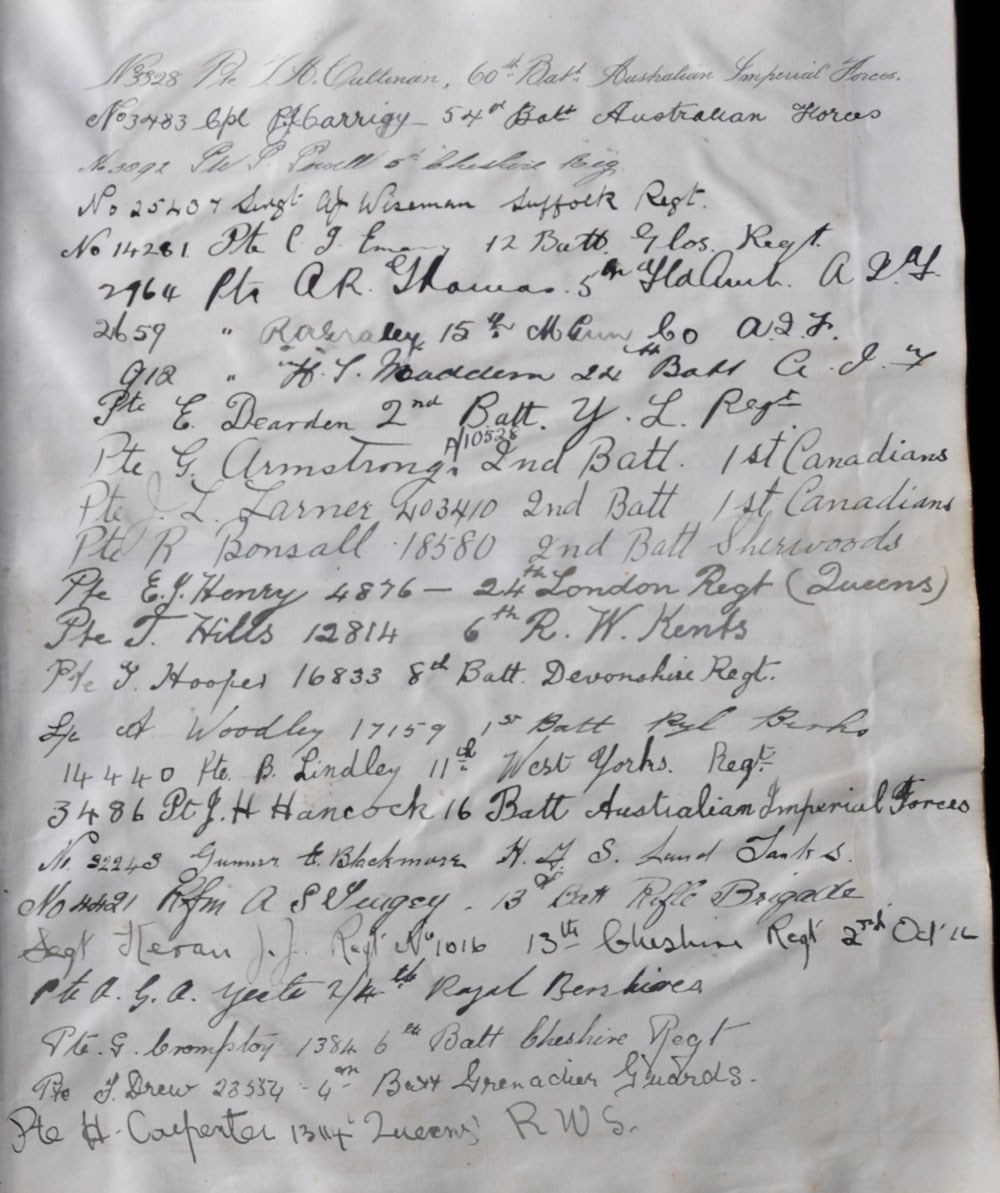 No 3328 Pte T. A. Cullinan, 60th Batt. Australian Imperial Forces.
No 3483 Cpl Garrigy - 54th Batt Australian Forces
Powell Cheshire Reg.
No 25437 Sergt Wiseman Suffolk Regt.
No 14281 Pte C. J. 12 Batt. Glos. Regt.
2964 Pte A. R. Thomas. 5th Fld Amb. A. I. F.
2659 " 15th M Gun Co A. I. F.
912 " H. T. Maddern 24th Batt A. I. F
Pte E. Dearden 2nd Batt. Y. L. Regt
Pte G. Armstrong. A/10528 2nd Batt. 1st Canadians
Pte J. L. Larner 403410 2nd Batt 1st Canadians
Pte R Bonsall 18580 2nd Batt Sherwoods
Pte E. J. Henry 4876 — 24th London Regt (Queens)
Pte T. Hills 12814 6th R. W. Kents
Pte Hooper 16833 8th Batt. Devonshire Regt.
L/c A Woodley 17159 1st Batt Ryl Berks
14440 Pte. B. Lindley 11th West Yorks. Regt.
3486 Pt J. H Hancock 16 Batt Australian Imperial Forces
No 32243 Gunner Blackmore H. S. Land Tanks.
No 4421 Rfm A S 13th Batt Rifle Brigade
Segt Keran J. J. Regt No 1016 13th Cheshire Regt 2nd Oct
Pte A. G. A. 2/4th Royal Bershires
Pte. G. Crompton 1384 6th Batt Cheshire Regt
Pte Drew 4th Batt Grenadier Guards.
Pte H. Carpenter Queens' R W S.